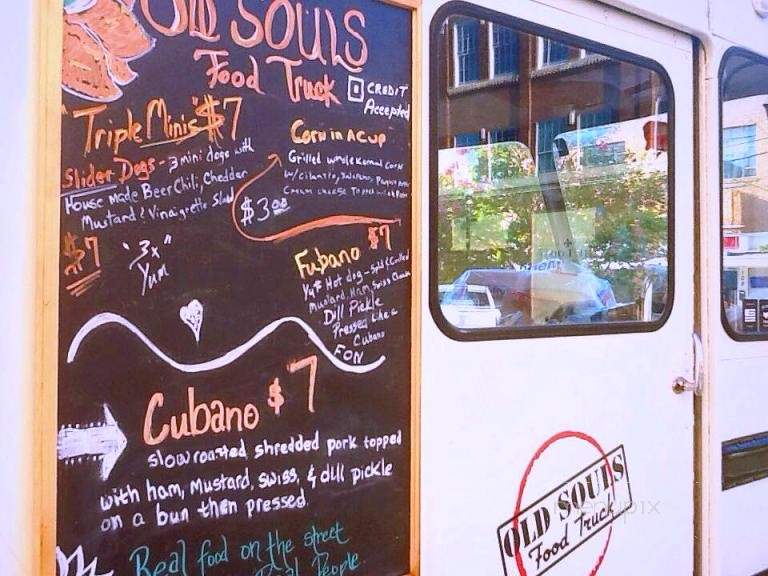 OLD SOULS
Food Truck
CREDIT
Accepted
"Triple Minis" $7
Slider Dogs - 3 mini dogs with
House Made Beer Chili, Chedder
Mustard & Vinaigrette Slaw
$7
"3x"
Yum
Corn in A CUP
Grilled whole kernel corn
w/ cilantro, Jalapeno,
Cream cheese Topped
$3.00
Fubano $7
Hot dog - Split & Grilled
Mustard, Ham, Swiss
Dill Pickle
Pressed Like a
Cubano
FON
Cubano $7
slow roasted shredded pork topped
with ham, Mustard, swiss, & dill pickle
on a bun then pressed.
Real food on the street
People.
OLD SOULS
Food Truck